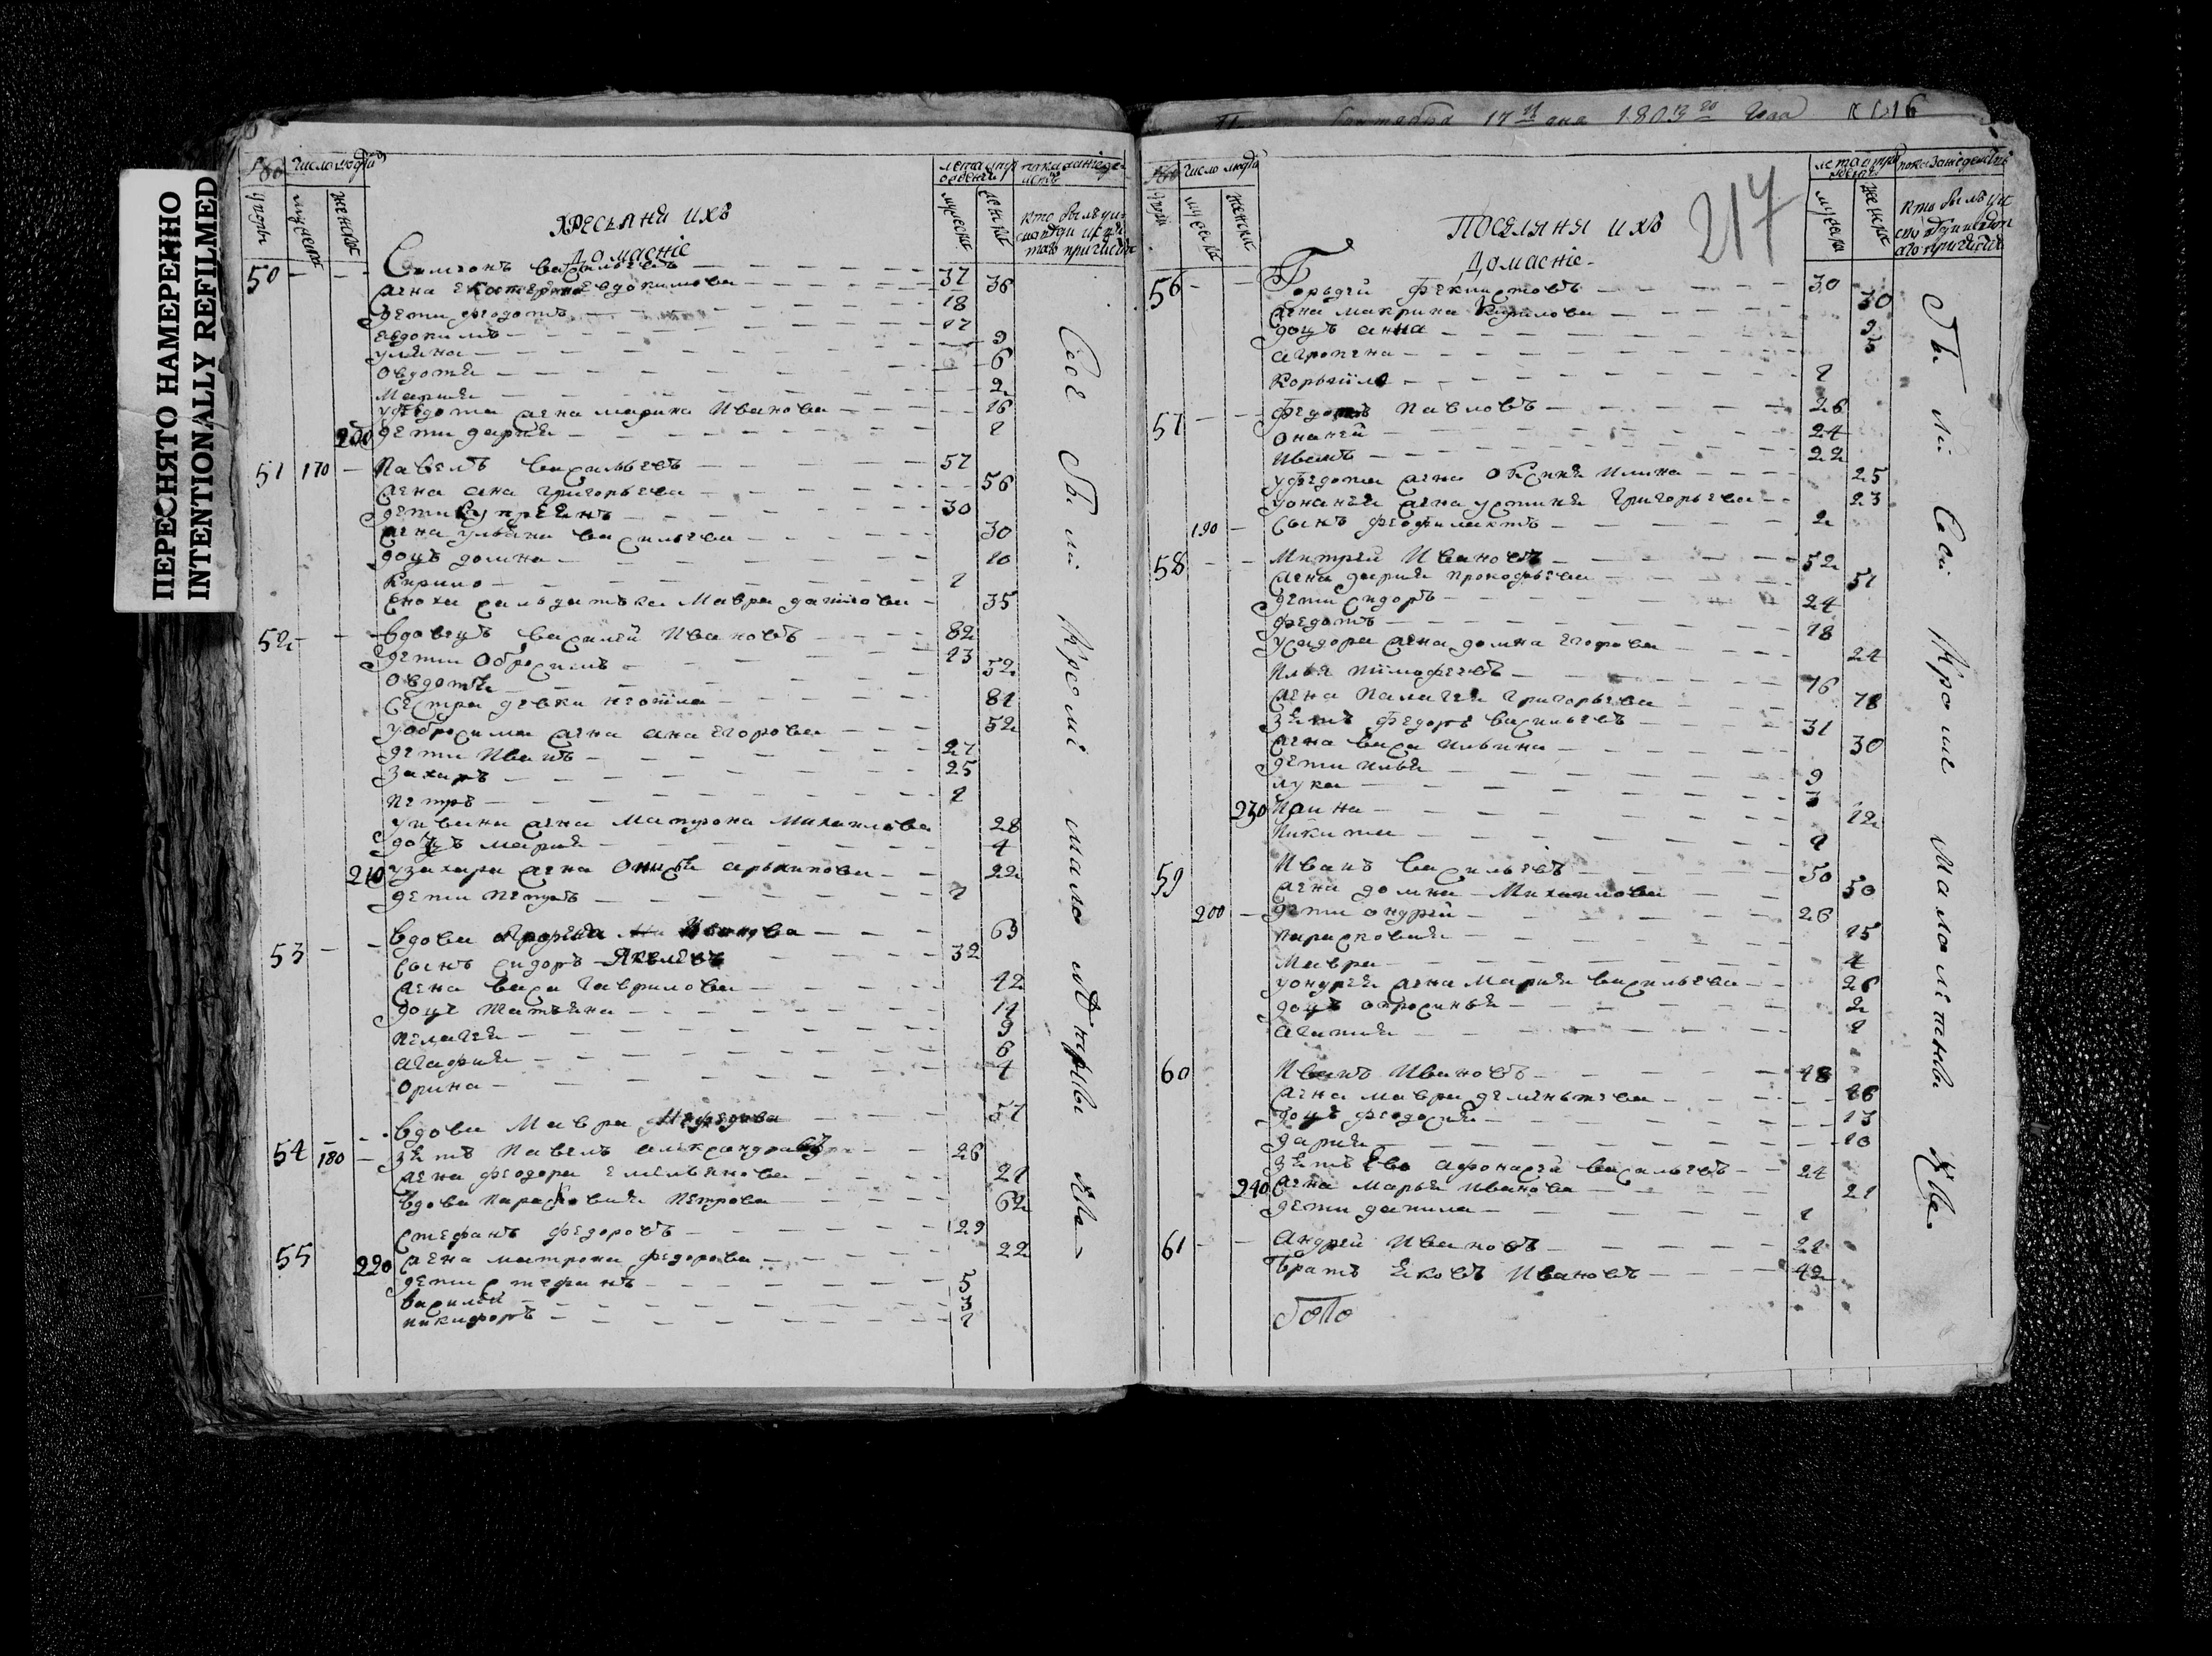 ПЕРЕСНЯТО НАМЕРЕННО
INTENTIONALLY REFILMED
число людей
мужеска
женска
ХРЕСЬЯНЯ ИХЪ
Домасніе
50 Самсонъ Васильевъ 37
жена Екатерина Евдокимова 36
дети Феодотъ 18
Евдокимъ 17
улияна 9
Овдотия 6
Мария 2
уфедота жена марина Иванова 16
200 дети дария 1
51 170 Павелъ Васильевъ 57
жена ана григорьева 56
дети Купреянъ 30
жена ульяна васильева 30
доць домна 10
Кирило 1
сноха сальдатъка Мавра данилова 35
52 вдовець василей Ивановъ 82
дети Обросимъ 13
Овдотия 52
сестра девка неонила 81
уобросима жена ана егорова 52
дети Иванъ 27
захаръ 25
петръ 1
уивана жена Матрона Михаилова 28
доць мария 4
210 узахара жена Онисья архипова 22
дети петръ 1
53 вдова Иванова 63
сынъ сидоръ Яковлевъ 32
жена васа Гаврилова 42
доць татьяна 11
пелагея 9
агафия 6
орина 4
54 вдова Мавра 57
180 зять Павелъ александровъ 26
жена феодора емельянова 21
вдова парасковия петрова 62
55 стефанъ федоровъ 29
220 жена матрона федорова 22
дети стефанъ 5
василей 3
никифоръ 1
Все были кроме мало летны е два
сентября 17 дня 180 года
217
число людей
мужеска
женска
ПОСЕЛЯНЯ ИХЪ
Домасніе
56 Горьдей феклистовъ 30
жена макрина Кирилова 30
доць анна 9
агропена 3
Корьнило 1
57 федотъ Павловъ 26
Онаней 24
Иванъ 22
уфедота жена Оксиния Илина 25
уонанея жена устиния григорьева 23
190 сынъ феофилактъ 2
58 Митрей Ивановъ 52
жена дария прокофьева 51
дети сидоръ 24
федотъ 18
усидора жена домна егорова 24
Илья тимофеевъ 76
жена палагея григорьева 78
зять федоръ васильевъ 31
жена васа ильина 30
дети илья 9
лука 3
230 Ирина 12
Никита 1
59 Иванъ Васильевъ 50
жена домна Михаилова 50
200 дети андрей 26
парасковия 15
Мавра 4
уондрея жена Мария васильева 26
доць опросинья 2
агапия 1
60 Иванъ Ивановъ 48
жена мавра дементьева 46
доць феодосия 13
дария 10
зять Его афонасей васильевъ 24
240 жена марья иванова 21
дети данила 1
61 Андрей Ивановъ 21
братъ яковъ Ивановъ 42
были Все Кроме Мало летны